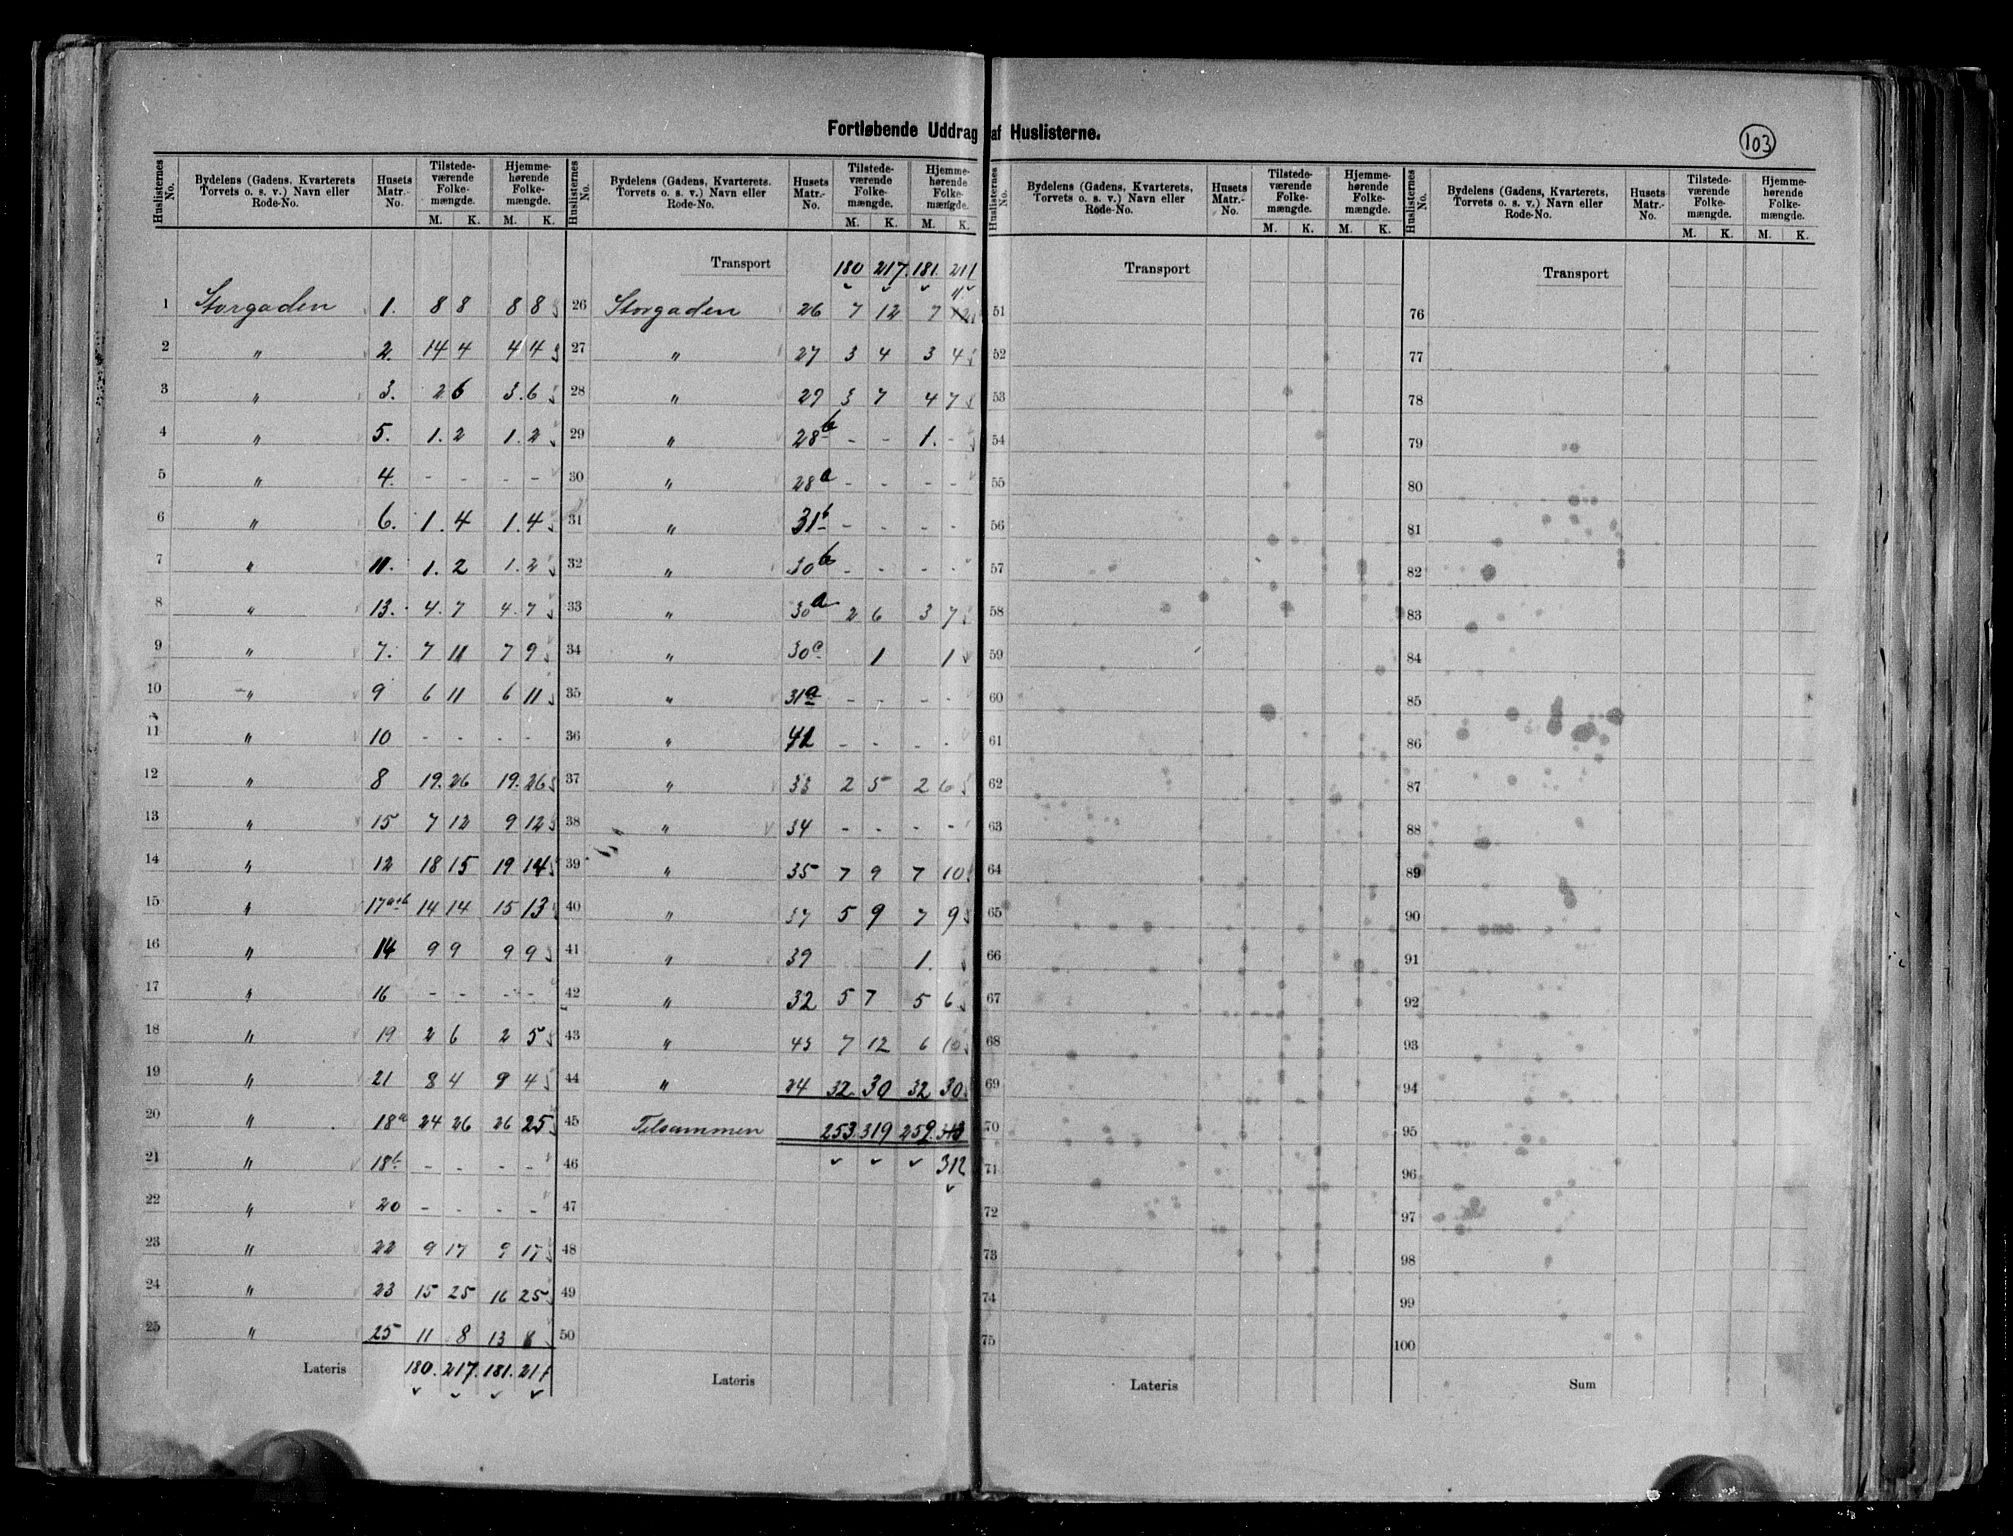 Fortløbende Uddrag af Huslisterne.
103
Huslisternes No. Bydelens (Gadens, Kvarterets Torvets o. s. v.) Navn eller Rode-No. Husets Matr.-No. Tilstedeværende Folkemængde. M. K. Hjemmehørende Folkemængde. M. K.
1 Storgaden 1. 8 8 8 8
2 " 2. 14 4 4 4
3 " 3. 2 6 3. 6
4 " 5. 1. 2 1. 2
5 " 4. - - - -
6 " 6. 1. 4 1. 4
7 " 11. 1. 2 1. 2
8 " 13. 4. 7 4. 7
9 " 7. 7 11 7 9
10 " 9 6 11 6 11
11 " 10 - - - -
12 " 8 19. 26 19. 26
13 " 15 7 12 9 12
14 " 12 18 15 19 14
15 " 17 a+b 14 14 15 13
16 " 14 9 9 9 9
17 " 16 - - - -
18 " 19 2 6 2 5
19 " 21 8 4 9 4
20 " 18a 24 26 26 25
21 " 18b - - - -
22 " 20 - - - -
23 " 22 9 17 9 17
24 " 23 15 25 16 25
25 " 25 11 8 13 8
Lateris 180. 217. 181. 211
Huslisternes No. Bydelens (Gadens, Kvarterets. Torvets o. s. v.) Navn eller Rode-No. Husets Matr.-No. Tilstedeværende Folkemængde. M. K. Hjemmehørende Folkemængde. M. K.
Transport 180 217. 181. 211
11.
26 Storgaden 26 7 12 7 12
27 " 27 3 4 3 4
28 " 29 3 7 4 7
29 " 28b - - 1. -
30 " 28a - - - -
31 " 31b - - - -
32 " 30b - - - -
33 " 30a 2 6 3 7
34 " 30c 1 1
35 " 31a - - - -
36 " 42 - - - -
37 " 33 2 5 2 6
38 " 34 - - - -
39 " 35 7 9 7 10
40 " 37 5 9 7 9
41 " 39 1.
42 " 32 5 7 5 6
43 " 43 7 12 6 10
44 " 24 32 30 32 30
45 Tilsammen 253. 319 259. 313
46 312
47
48
49
50
Lateris
Huslisternes No. Bydelens (Gadens, Kvarterets, Torvets o. s. v.) Navn eller Rode-No. Husets Matr.-No. Tilstedeværende Folkemængde. M. K. Hjemmehørende Folkemængde. M. K.
Transport
51
52
53
54
55
56
57
58
59
60
61
62
63
64
65
66
67
68
69
70
71
72
73
74
75
Lateris
Huslisternes No. Bydelens (Gadens, Kvarterets, Torvets o. s. v.) Navn eller Rode-No. Husets Matr.-No. Tilstedeværende Folkemængde. M. K. Hjemmehørende Folkemængde. M. K.
Transport
76
77
78
79
80
81
82
83
84
85
86
87
88
89
90
91
92
93
94
95
96
97
98
99
100
Sum